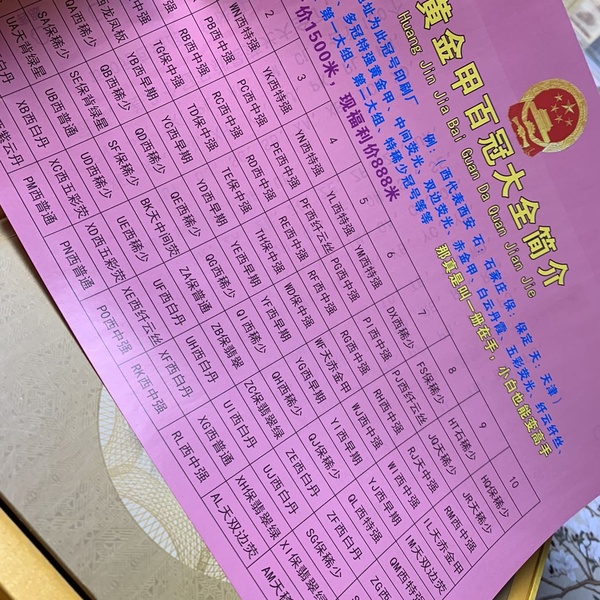 黄金甲百冠大全简介
Huang Jin Jia Bai Guan Da Quan Jian Jie
址为此冠号印刷厂 例:(西代表西安 石:石家庄 保:保定 天:天津)
多冠特强黄金甲、中间荧光、双边荧光、赤金甲、白云丹霞、五彩荧光、纤云纤丝、
第一大组、第二大组、特稀少冠号等等 那真是叫一册在手,小白也能变高手
价1500米,现福利价888米
2 3 4 5 6 7 8 9 10
WN西特强 YK西特强 YN西特强 YL西特强 YM西特强 DX西稀少 FS保稀少 HT石稀少 HQ保稀少
PB西中强 PC西中强 PE西中强 PF西纤云丝 PG西中强 PI西中强 PJ西纤云丝 JQ天稀少 JR天稀少
RB西中强 RC西中强 RD西中强 RE西中强 RF西中强 RG西中强 WJ西中强 RJ天中强 RM西中强
TG保中强 TD保中强 TE保中强 TH保中强 WD保中强 WF天赤金甲 WG西中强 WI西中强 IL天赤金甲
西龙凤板 YB西早期 YC西早期 YD西早期 YE西早期 YF西早期 YG西早期 YI西早期 YJ西早期 IM天双边荧
QA西稀少 QB西稀少 QD西稀少 QE西稀少 QG西稀少 QI西稀少 QH西稀少 QJ保稀少 QL西特强 QM西特强
SA保稀少 SE保背绿星 SF保稀少 BK天中间荧 ZA保普通 ZB保翡翠 ZC保翡翠绿 ZE西白丹 ZF西白丹 ZG西
UA天背绿星 UB西普通 UD西稀少 UE西稀少 UF西白丹 UH西白丹 UI西白丹 UJ西白丹 SG保稀少
西白丹 XB西白丹 XC西五彩荧 XD西五彩荧 XE西纤云丝 XF西白丹 XG西普通 XH保翡翠绿 XI保翡翠绿
紫云丹 PM西普通 PN西普通 PO西中强 RK西中强 RL西中强 AL天双边荧 AM天